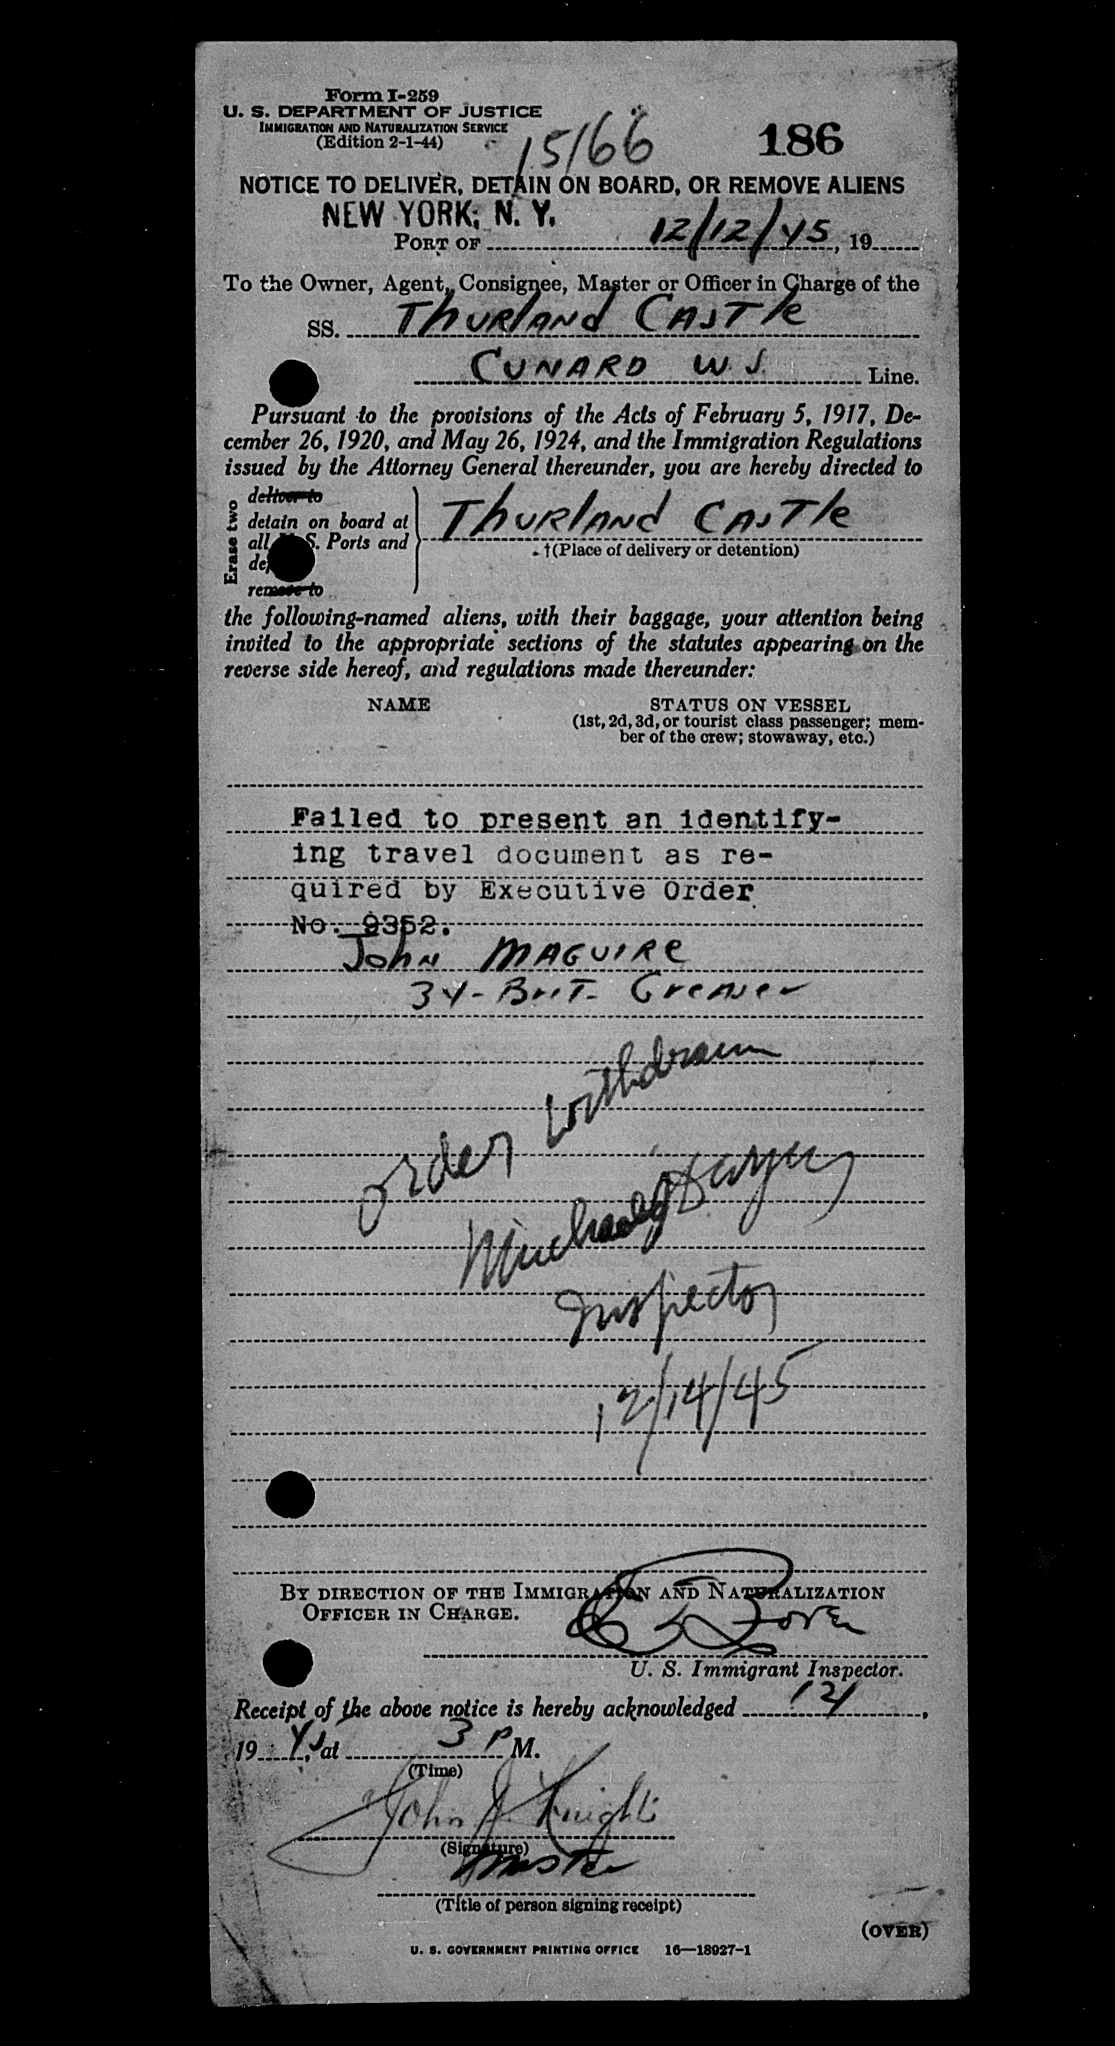 Form I-259
U. S. DEPARTMENT OF JUSTICE
IMMIGRATION AND NATURALIZATION SERVICE
(Edition 2-1-44)
15166
186
NOTICE TO DELIVER, DETAIN ON BOARD, OR REMOVE ALIENS
NEW YORK, N. Y.
PORT OF 12/12/45, 19
To the Owner, Agent, Consignee, Master or Officer in Charge of the
SS. Thurland Castle
CUNARD W S. Line.
Pursuant to the provisions of the Acts of February 5, 1917, De-
cember 26, 1920, and May 26, 1924, and the Immigration Regulations
issued by the Attorney General thereunder, you are hereby directed to
Erase two
deliver to
detain on board at
all U. S. Ports and
remove to
Thurland Castle
†(Place of delivery or detention)
the following-named aliens, with their baggage, your attention being
invited to the appropriate sections of the statutes appearing on the
reverse side hereof, and regulations made thereunder:
NAME
STATUS ON VESSEL
(1st, 2d, 3d, or tourist class passenger; mem-
ber of the crew; stowaway, etc.)
Failed to present an identify-
ing travel document as re-
quired by Executive Order
No. 9352.
John Maguire
34-Brit- Greaser
order withdrawn
Michael
Inspector
12/14/45
BY DIRECTION OF THE IMMIGRATION AND NATURALIZATION
OFFICER IN CHARGE.
U. S. Immigrant Inspector.
Receipt of the above notice is hereby acknowledged 12/,
19 45, at 3 P M.
(Time)
John J. Knight
(Signature)
Master
(Title of person signing receipt)
(OVER)
U. S. GOVERNMENT PRINTING OFFICE 16—18927-1